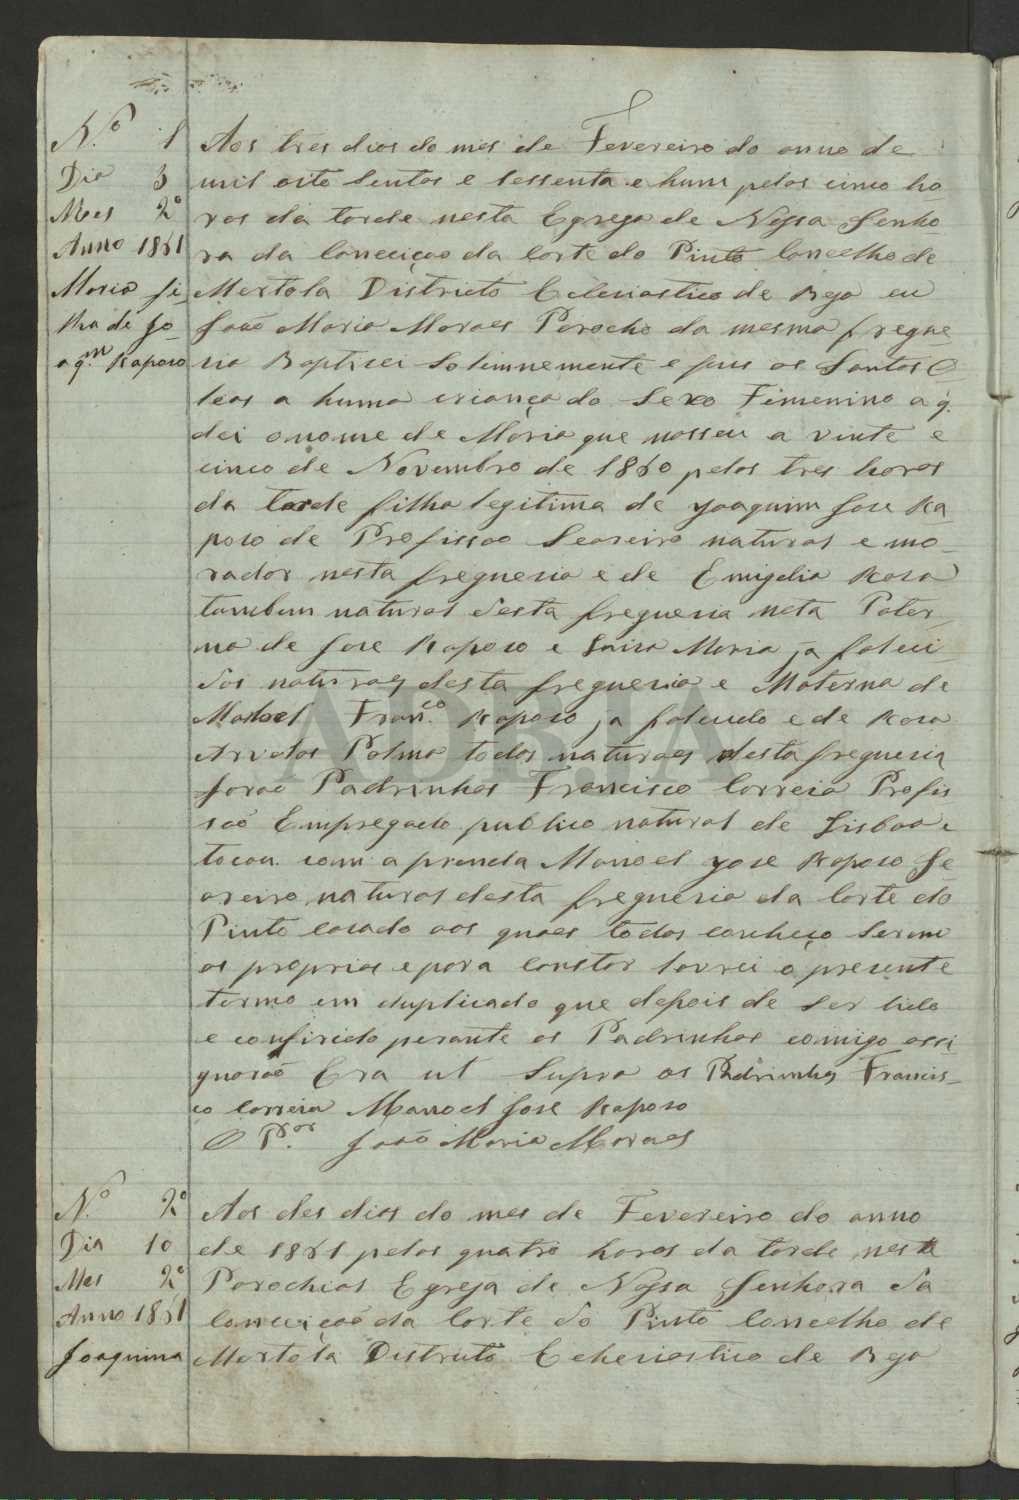 N.º 1
Dia 3
Mes 2º
Anno 1861
Maria fi-
lha de Jo-
aqm. Raposo
Aos tres dias do mes de Fevereiro do anno de
mil oito sentos e sessenta e hum pelas cinco ho
ras da tarde nesta Egreja de Nossa Senho-
ra da Conceiçao da Corte do Pinto Concelho de
Mertola Districto Eclesiastico de Beja eu
João Maria Moraes Parocho da mesma fregue-
zia Baptizei solemnemente e pus os Santos O
leos a huma criança do Sexo Femenino a q.
dei o nome de Maria que nasseu a vinte e
cinco de Novembro de 1860 pelas tres horas
da tarde filha legitima de Joaquim Jose Ra-
poso de Profissao Seareiro natural e mo-
rador nesta freguesia e de Emigdia Rosa
tambem natural desta freguesia neta Pater-
na de Jose Raposo e Luisa Maria ja faleci-
dos naturaes desta freguesia e Materna de
Manoel Franco. Raposo ja falecido e de Rosa
Palma todos naturaes desta freguesia
forão Padrinhos Francisco Correia Profis
são Empregado publico natural de Lisboa e
tocou com a prenda Manoel Jose Raposo Se-
areiro natural desta freguesia da Corte do
Pinto casado aos quaes todos conheço serem
os proprios e para constar lavrei o presente
termo em duplicado que depois de ser lido
e conferido perante os Padrinhos comigo assi-
gnarão Era ut Supra os Padrinhos Francis-
co Correia Manoel Jose Raposo
O Pº.or João Maria Moraes
N.º 2º
Dia 10
Mes 2º
Anno 1861
Joaquina
Aos des dias do mes de Fevereiro do anno
de 1861 pelas quatro horas da tarde nesta
Parochial Egreja de Nossa Senhora da
Conceição da Corte do Pinto Concelho de
Mertola Distruto Echesiastico de Beja
ADBJA